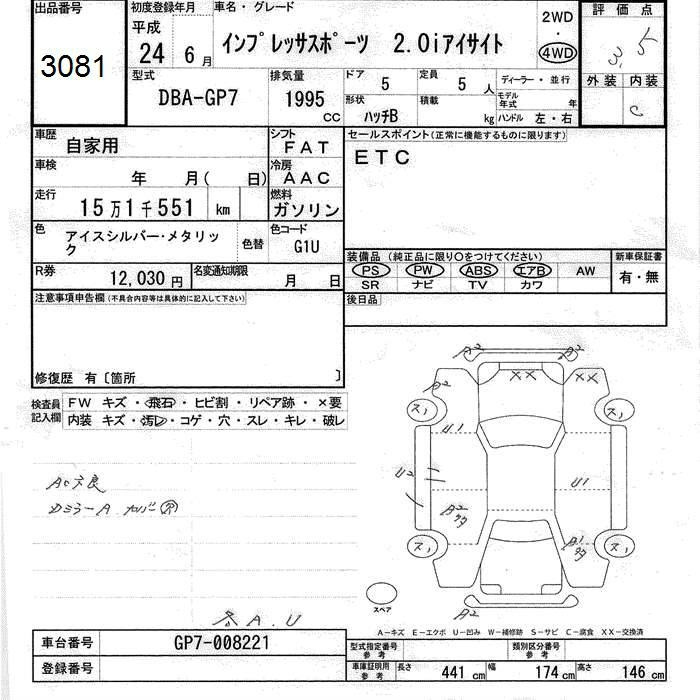 出品番号
3081
初度登録年月
平成
24 6 月
車名・グレード
インプレッサスポーツ 2.0iアイサイト
2WD
・
4WD
評価点
3.5
外装 内装
C
型式
DBA-GP7
排気量
1995
CC
ドア
5
定員
5 人
形状
ハッチB
積載
kg
ディーラー・並行
モデル年式 年
ハンドル 左・右
車歴
自家用
シフト
FAT
車検
年 月( 日)
冷房
AAC
走行
15万1千551 km
燃料
ガソリン
色
アイスシルバー・メタリック
色替
色コード
G1U
R券
12,030 円
名変通知期限
月 日
セールスポイント(正常に機能するものに限ります)
ETC
装備品 (純正品に限り○をつけてください)
PS PW ABS エアB AW
SR ナビ TV カワ
新車保証書
有・無
後日品
注意事項申告欄(不具合内容等は具体的に記入して下さい)
修復歴 有〔箇所 〕
検査員
記入欄
FW キズ・飛石・ヒビ割・リペア跡・×要
内装 キズ・汚レ・コゲ・穴・スレ・キレ・破レ
AC不良
各A.U
A2
A2
A2
XX
XX
ス1
ス1
U1
U2
U1
A2
A1
ス1
ス1
スペア
A2
A-キズ E-エクボ U-凹み W-補修跡 S-サビ C-腐食 XX-交換済
車台番号
GP7-008221
登録番号
型式指定番号
参考
類別区分番号
参考
車庫証明用
参考
長さ 441 cm 幅 174 cm 高さ 146 cm